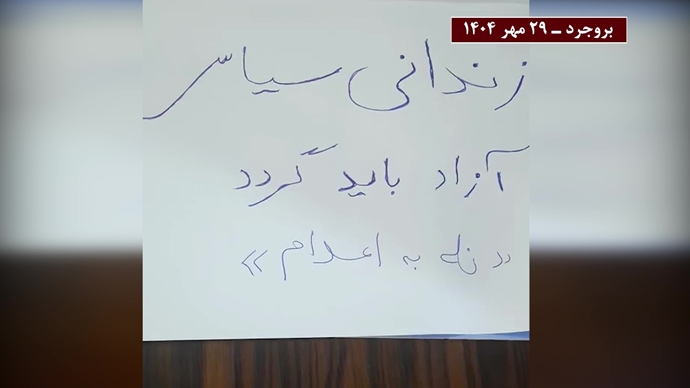 بروجرد ــ ۲۹ مهر ۱۴۰۴
زندانی سیاسی
آزاد باید گردد
«نه به اعدام»